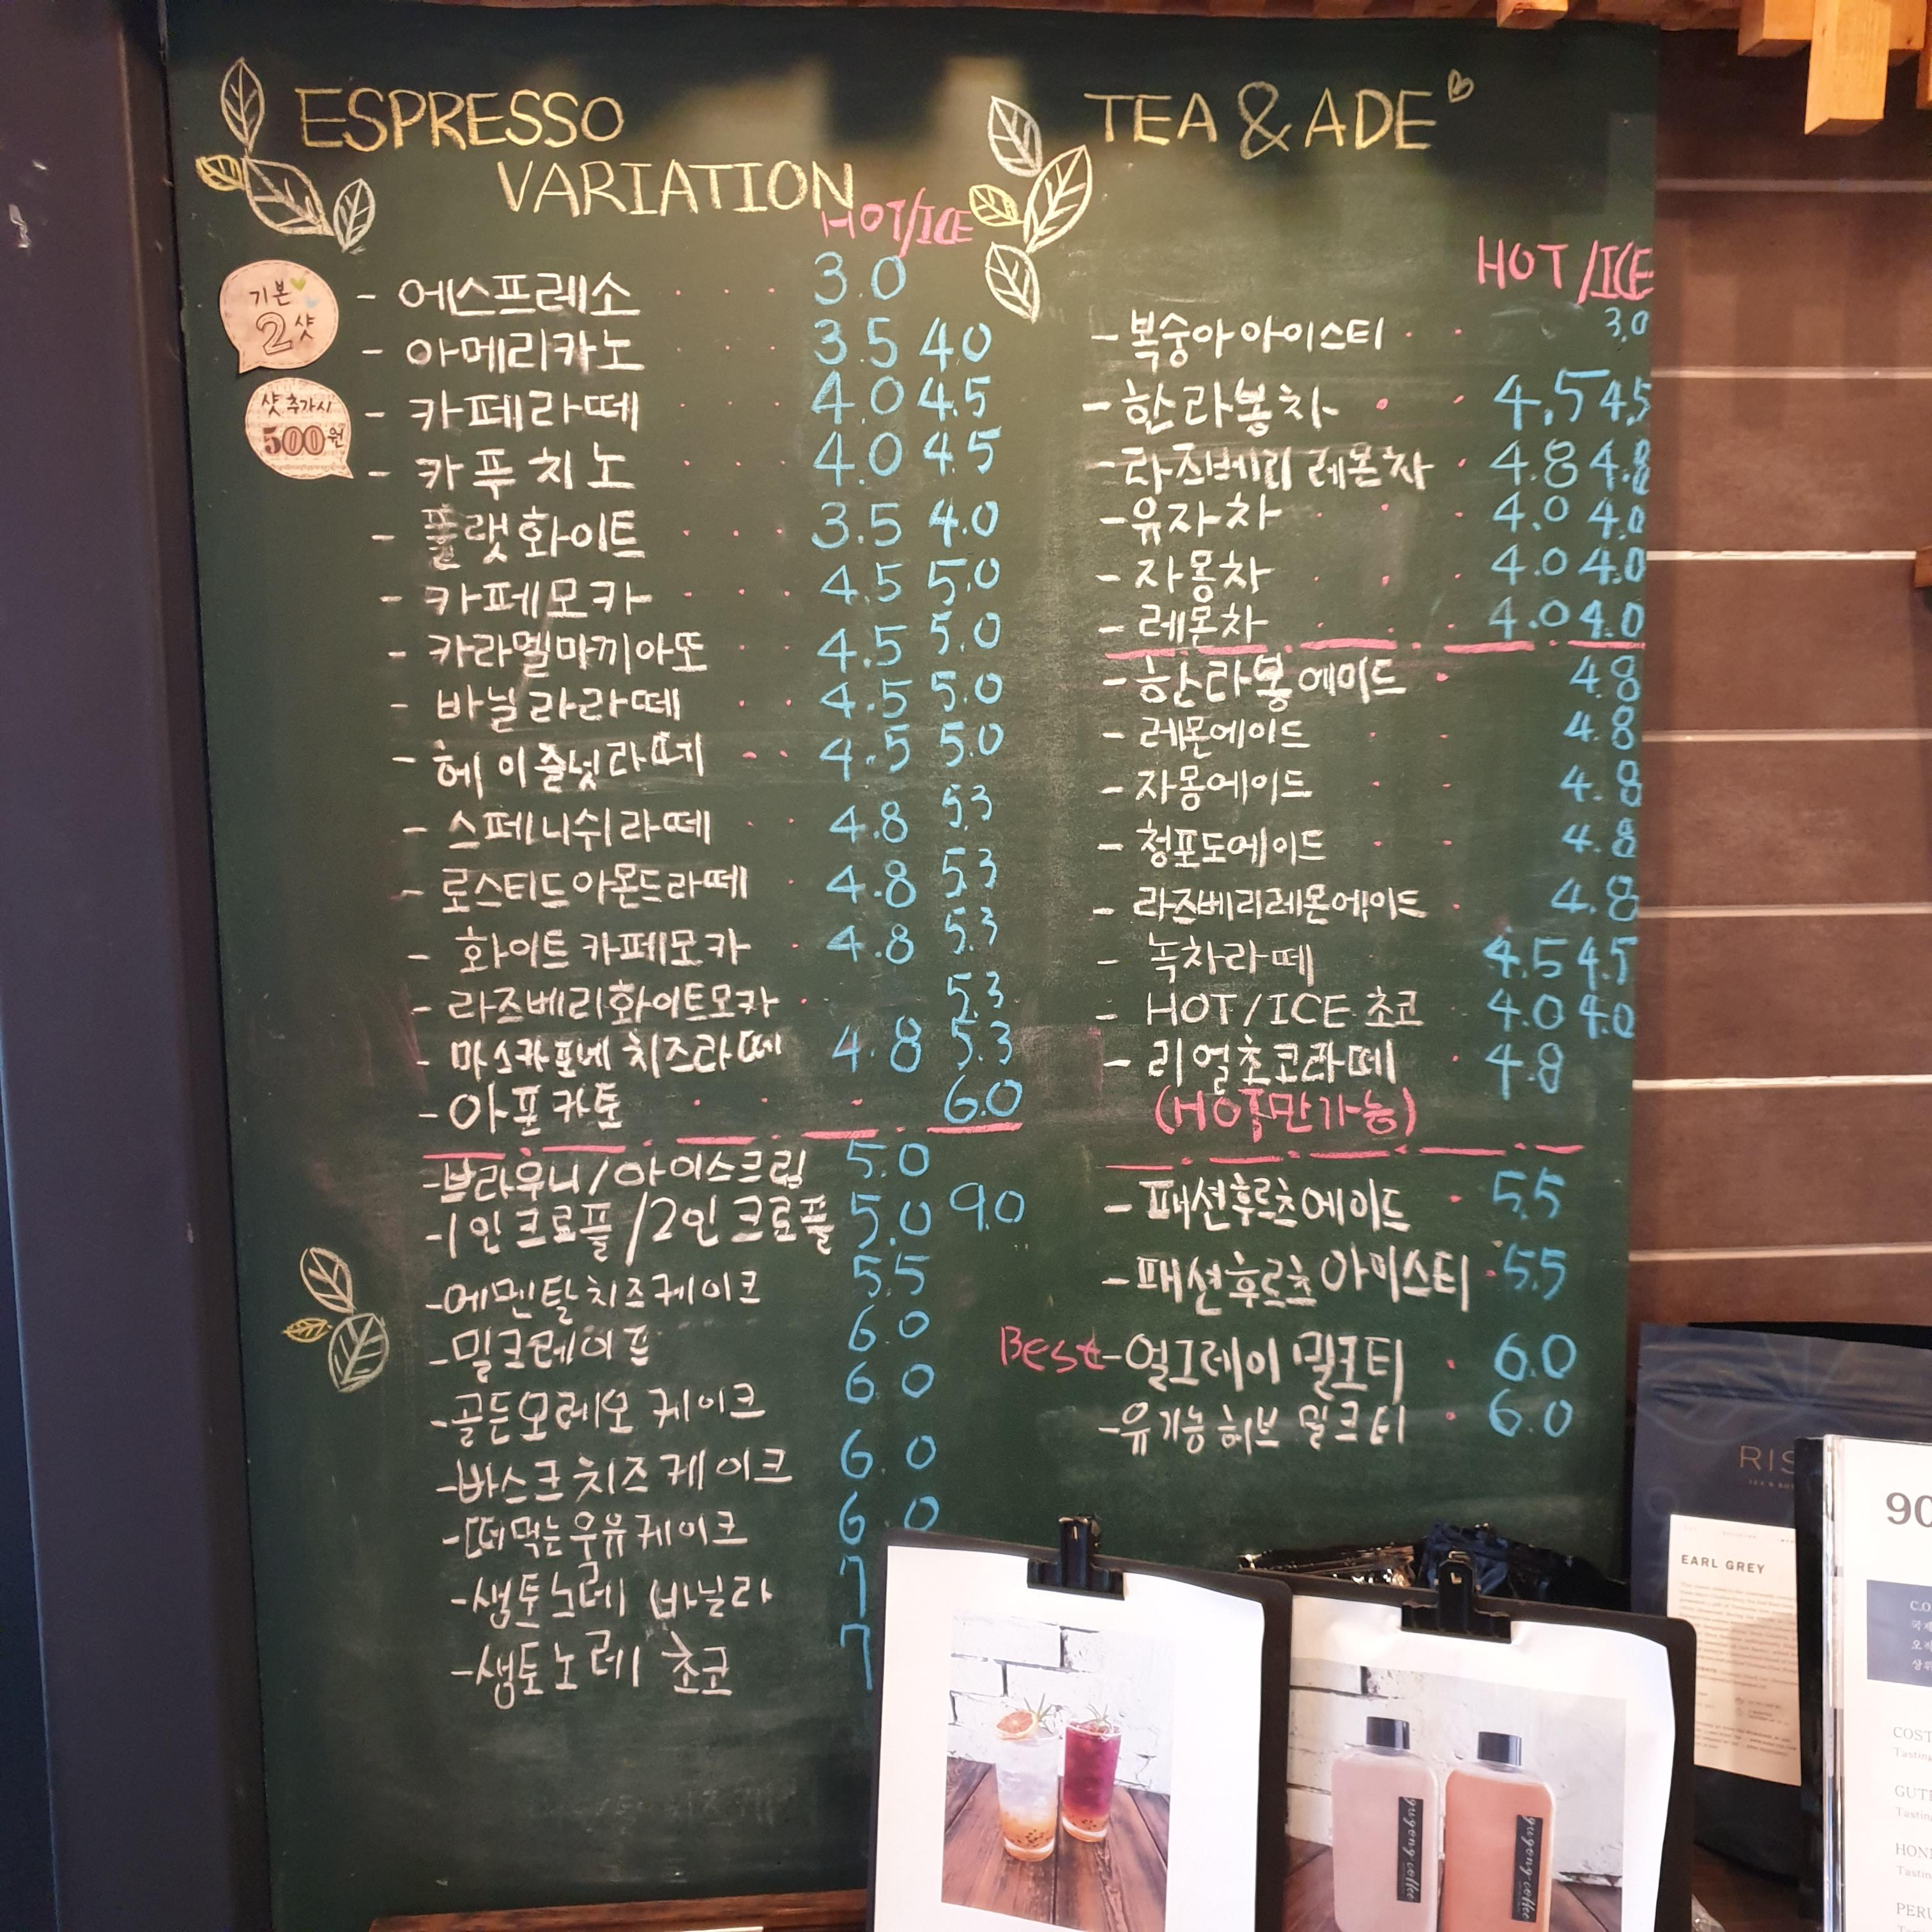 ESPRESSO
VARIATION
HOT/ICE
기본
2샷
샷추가시
500원
- 에스프레소 3.0
- 아메리카노 3.5 4.0
- 카페라떼 4.0 4.5
- 카푸치노 4.0 4.5
- 플랫화이트 3.5 4.0
- 카페모카 4.5 5.0
- 카라멜마끼아또 4.5 5.0
- 바닐라라떼 4.5 5.0
- 헤이즐넛라떼 4.5 5.0
- 스페니쉬라떼 4.8 5.3
- 로스티드아몬드라떼 4.8 5.3
- 화이트카페모카 4.8 5.3
- 라즈베리화이트모카 5.3
- 마스카포네 치즈라떼 4.8 5.3
- 아포카토 6.0
- 브라우니/아이스크림 5.0
- 1인크로플/2인크로플 5.0 9.0
- 에멘탈치즈케이크 5.5
- 밀크레이프 6.0
- 골든오레오 케이크 6.0
- 바스크치즈케이크 6.0
- 떠먹는우유케이크 6.0
- 생토노레 바닐라 7
- 생토노레 초코 7
TEA & ADE
HOT/ICE
- 복숭아아이스티 3.0
- 한라봉차 4.5 4.5
- 라즈베리 레몬차 4.8 4.8
- 유자차 4.0 4.0
- 자몽차 4.0 4.0
- 레몬차 4.0 4.0
- 한라봉에이드 4.8
- 레몬에이드 4.8
- 자몽에이드 4.8
- 청포도에이드 4.8
- 라즈베리레몬에이드 4.8
- 녹차라떼 4.5 4.5
- HOT/ICE 초코 4.0 4.0
- 리얼초코라떼 4.8
(HOT만가능)
- 패션후르츠에이드 5.5
- 패션후르츠아이스티 5.5
Best - 얼그레이 밀크티 6.0
- 유기농허브 밀크티 6.0
gugong coffee
gugong coffee
RIS
EARL GREY
90
C.O.
국제
오직
상위
COST
Tasting
GUTE
Tasting
HON
Tasting
PERU